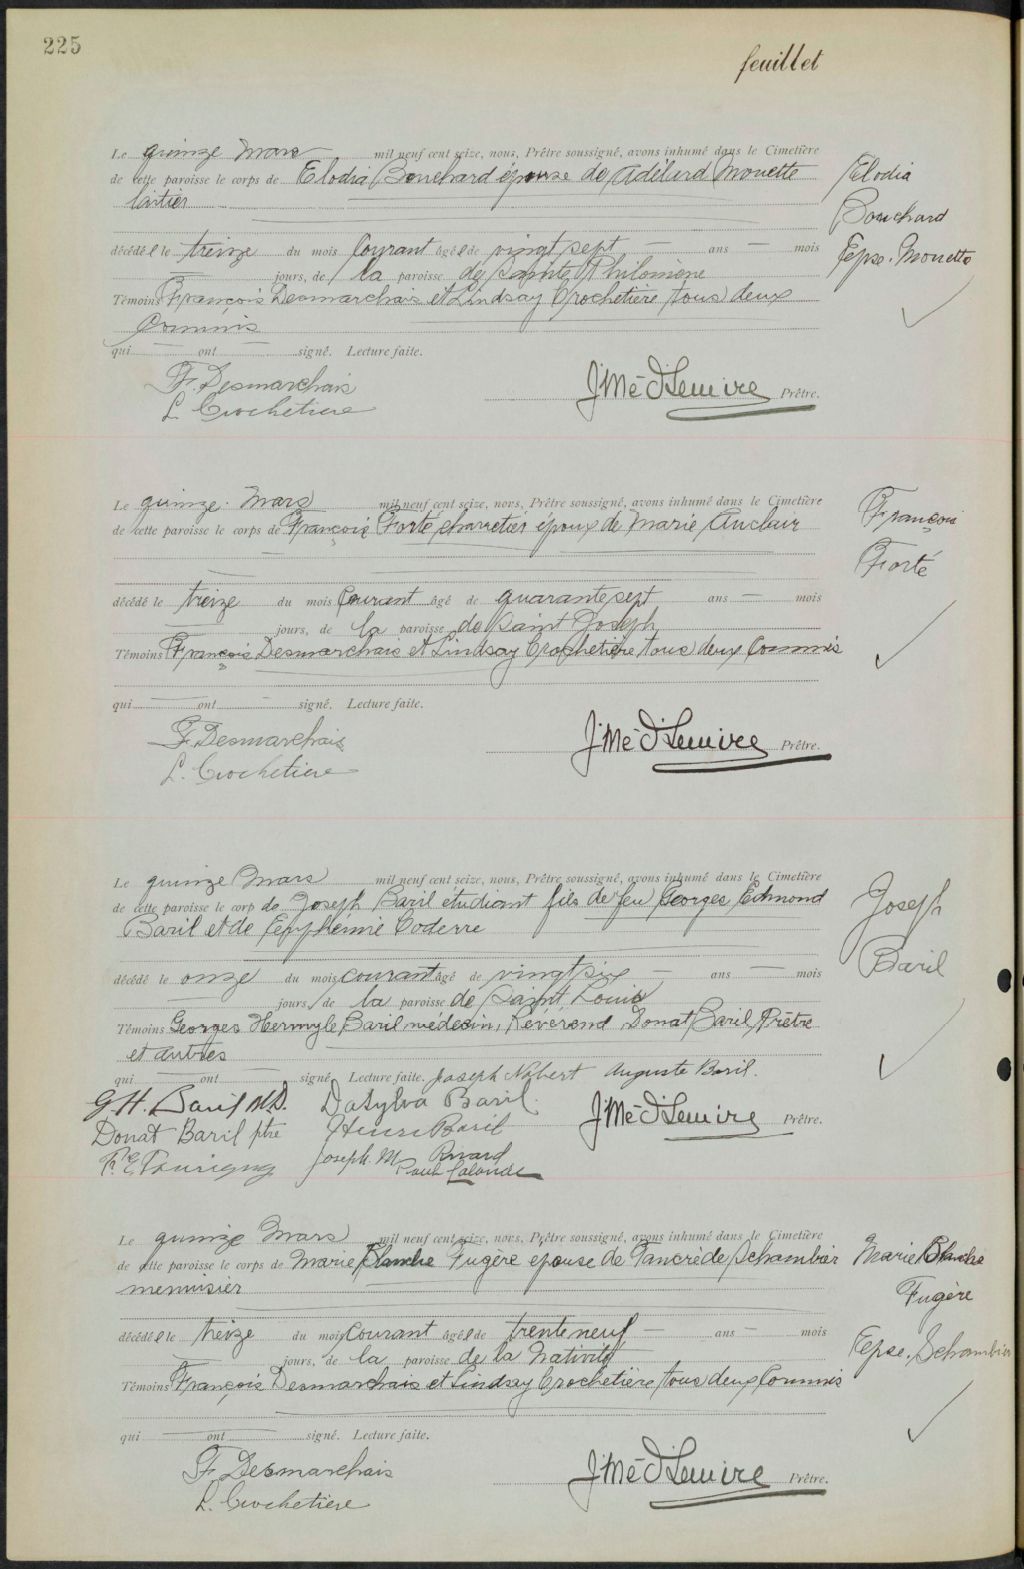 225
feuillet
Le quinze Mars mil neuf cent seize, nous, Prêtre soussigné, avons inhumé dans le Cimetière
de cette paroisse le corps de Elodia Bouchard épouse de Adélard Monette
laitier
Elodia
Bouchard
Epse. Monette
décédée le treize du mois courant âgée de vingt sept — ans — mois
— jours, de la paroisse de Sainte Philomène
Témoins François Desmarchais et Lindsay Crochetière tous deux
Commis
qui — ont — signé. Lecture faite.
F. Desmarchais
L. Crochetiere
Prêtre.
Le quinze Mars mil neuf cent seize, nous, Prêtre soussigné, avons inhumé dans le Cimetière
de cette paroisse le corps de François Forté charretier époux de Marie Auclair
François
Forté
décédé le treize du mois Courant âgé de quarante sept ans — mois
— jours, de la paroisse de Saint Joseph
Témoins François Desmarchais et Lindsay Crochetière tous deux Commis
qui — ont — signé. Lecture faite.
F. Desmarchais
L. Crochetiere
Prêtre.
Le quinze Mars mil neuf cent seize, nous, Prêtre soussigné, avons inhumé dans le Cimetière
de cette paroisse le corp de Joseph Baril étudiant fils de feu Georges Edmond
Baril et de Euphémie Coderre
Joseph
Baril
décédé le onze du mois courant âgé de vingt six — ans — mois
— jours, de la paroisse de Saint Louis
Témoins Georges Hermyle Baril médecin, Révérend Donat Baril, Prêtre
et autres
qui — ont — signé. Lecture faite. Joseph Auguste Baril.
G. H. Baril M.D. DaSylva Baril.
Donat Baril ptre Henri Baril
Joseph. M Rivard
Paul Lalonde
Prêtre.
Le quinze Mars mil neuf cent seize, nous, Prêtre soussigné, avons inhumé dans le Cimetière
de cette paroisse le corps de Marie Blanche Fugère epouse de Tancrède Schambier
menuisier
Marie Blanche
Fugère
Epse. Schambier
décédée le treize du mois courant âgée de trente neuf — ans — mois
— jours, de la paroisse de la Nativité
Témoins François Desmarchais et Lindsay Crochetière tous deux Commis
qui — ont — signé. Lecture faite.
F. Desmarchais
L. Crochetiere
Prêtre.